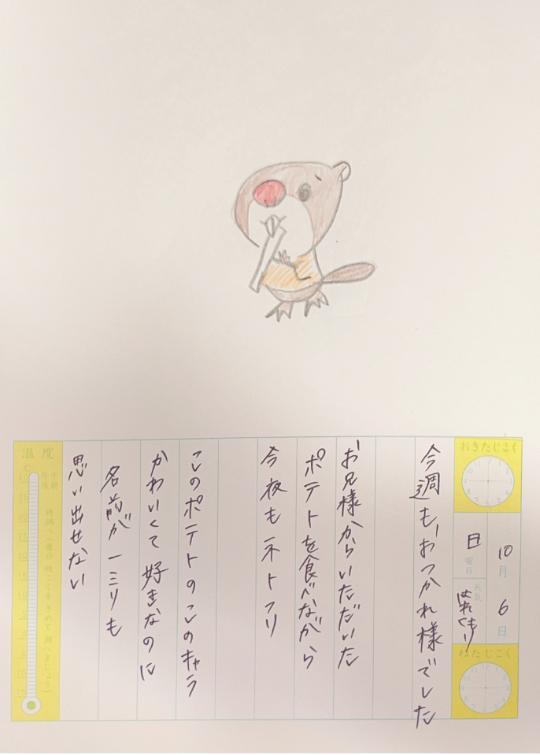 おきたじこく
10月6日
日曜日
天気 はれくもり
ねたじこく
今週も、おつかれ様でした
お兄様からいただいた
ポテトを食べながら
今夜もネトフリ
このポテトのこのキャラ
かわいくて好きなのに
名前が一ミリも
思い出せない
温度